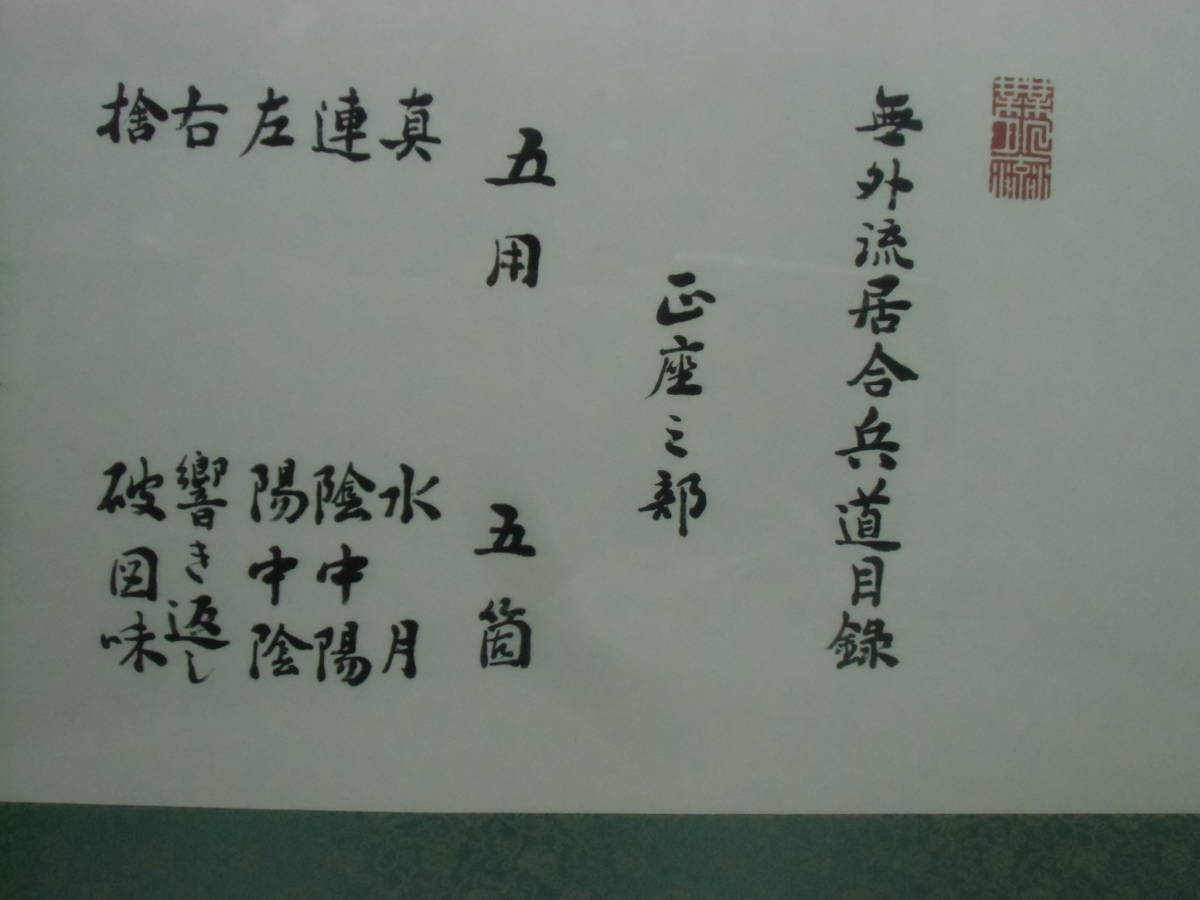 無外流居合兵道目録
正座之部
五用 五箇
真 水月
連 陰中陽
左 陽中陰
右 響き返し
捨 破図味